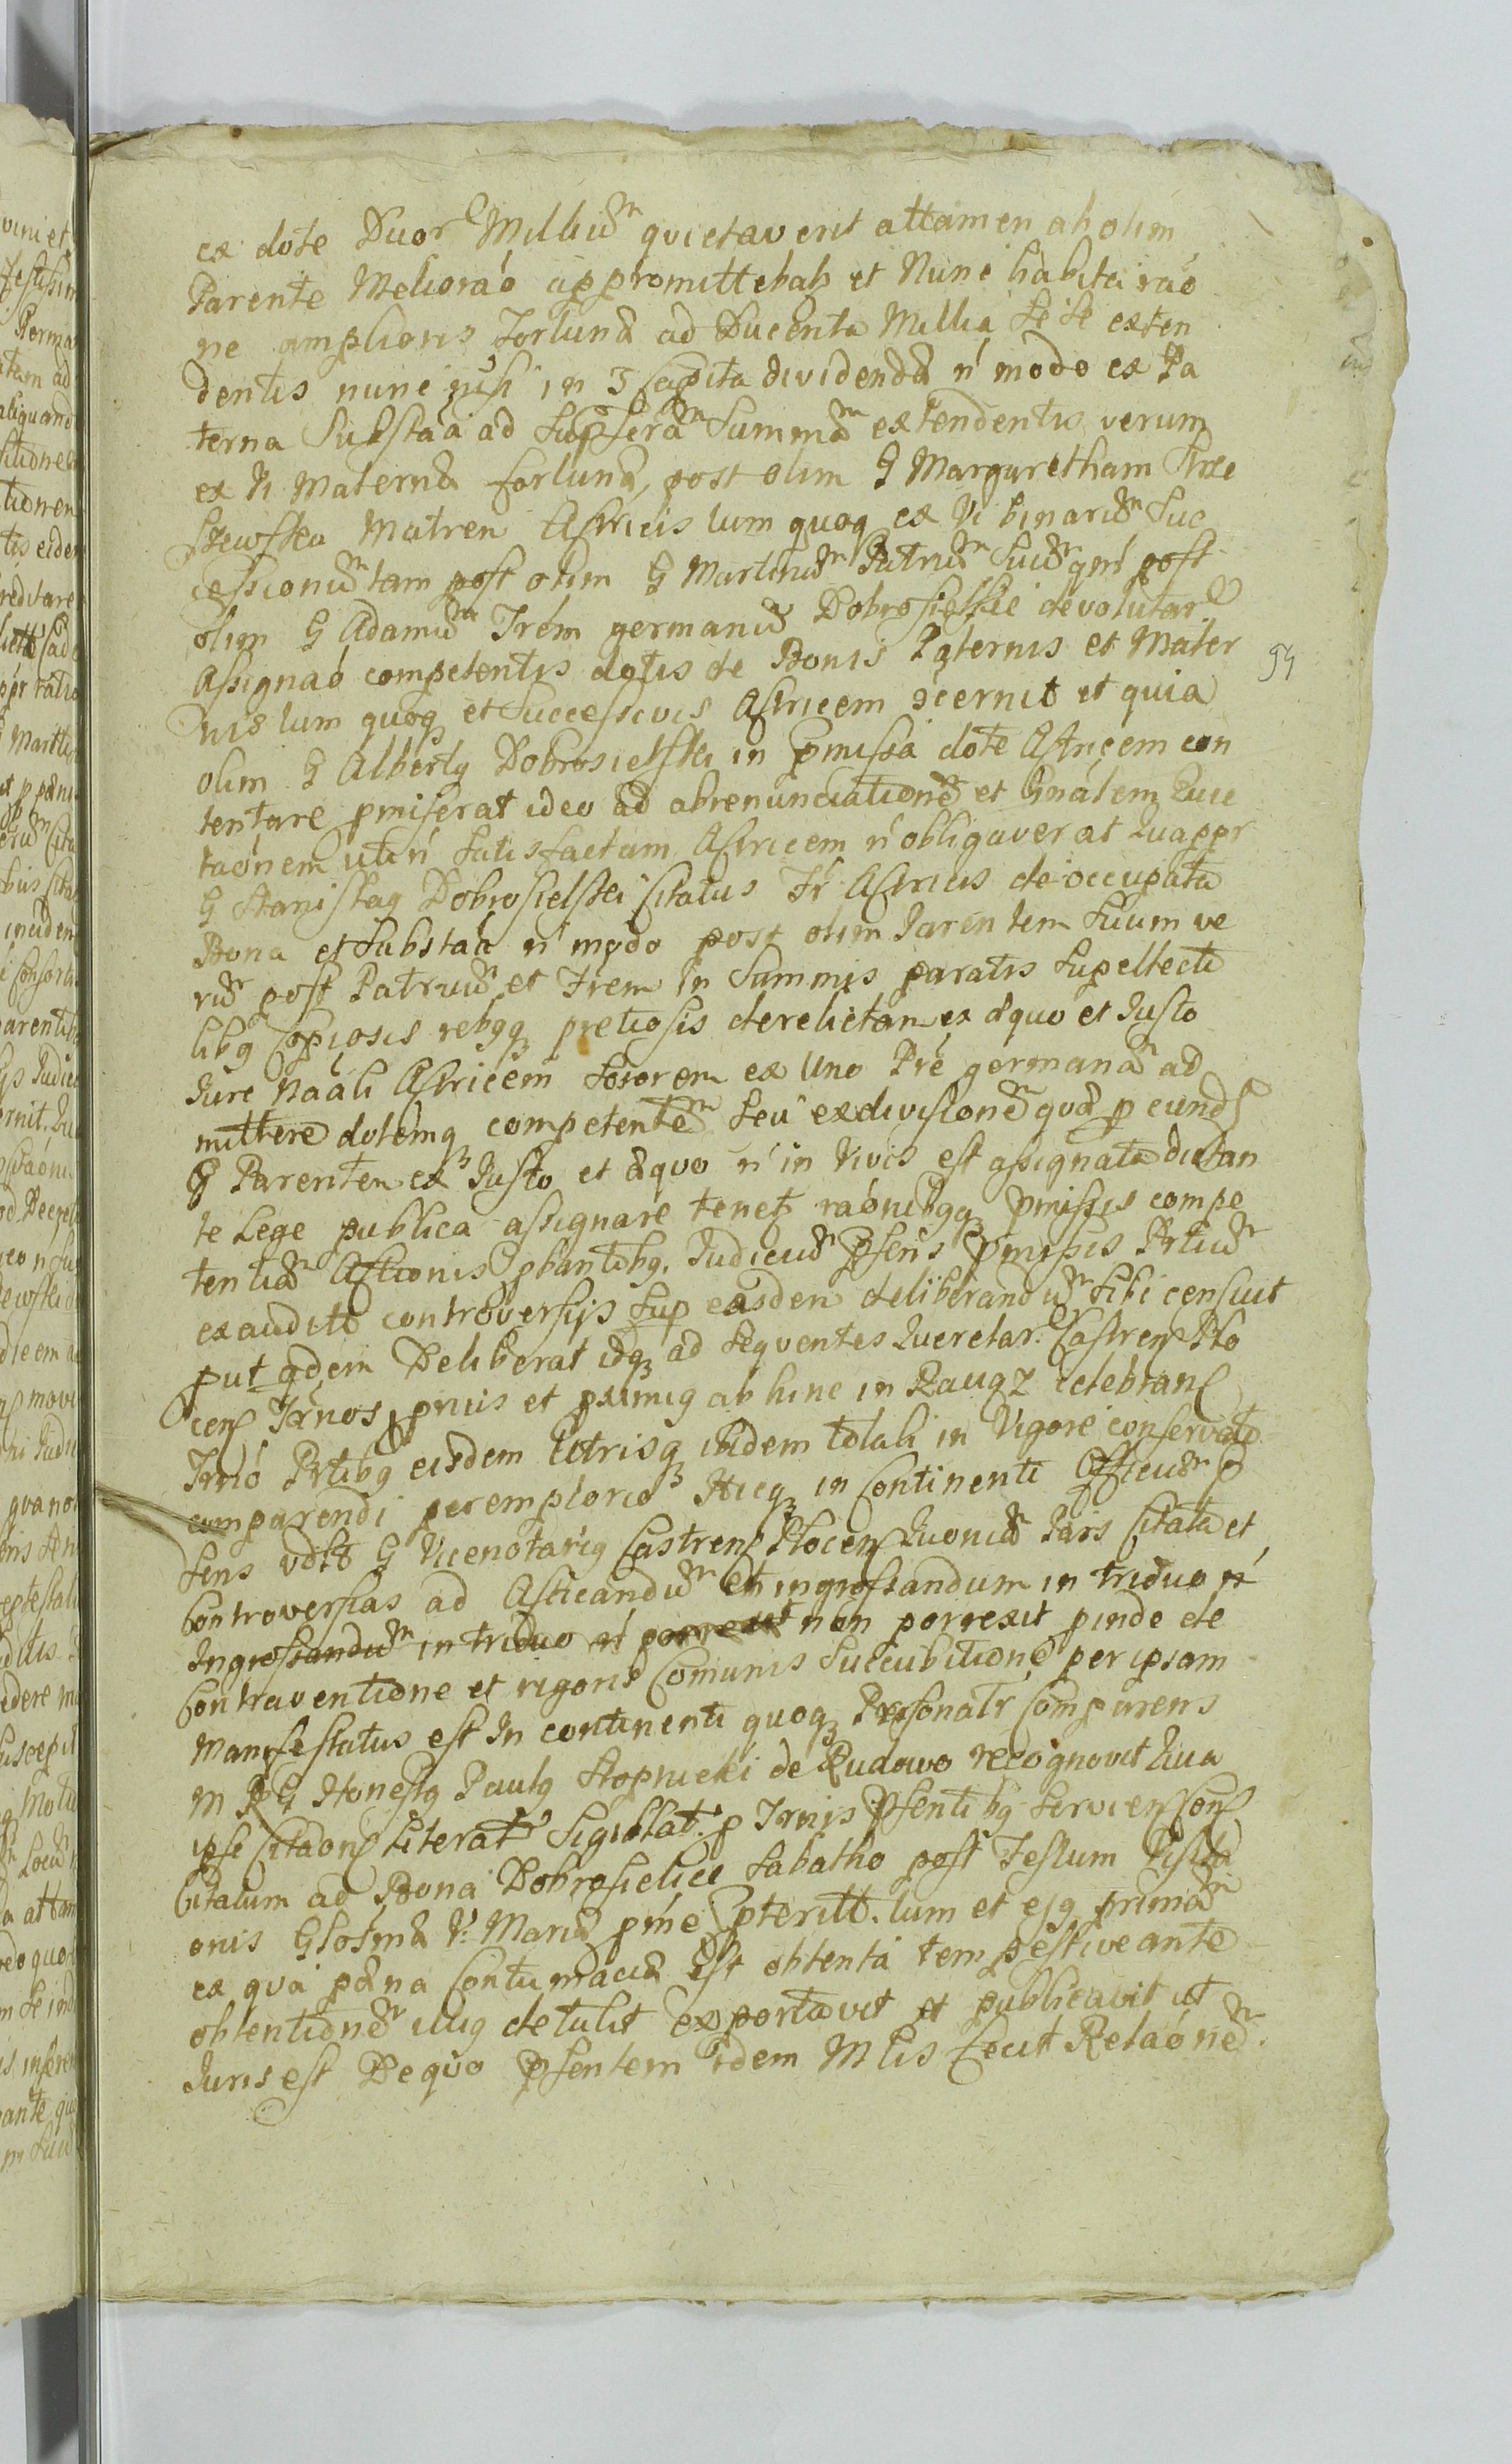 ex dote Duor Milliũ quietaverit attamen ab olim
Parente Meliorãó appromittebatʒ et Nunc habita raó
ne amplioris Fortunæ ad Ducenta Millia Se Se exten
dentis nunc nisi in 3 Capita dividendæ ń modo ex Pa
terna Substáa ad supserã Summã extendentis verum
ex Materna fortuna, post olim G Margaretham
Matrem Actricis tum quoqʒ ex Vi binariũ Suc
cessionũ tam post olim G Martinũ Patruũ Suũ qm̃ post
olim G Adamũ Frem germanũ Dobrosielskie devolutar
Assignaó competentis dotis de Bonis Paternis et Mater
nis tum quoqʒ et Successivis Actricem cernit et quia
olim G Albertq Dobrosielski in pmissa dote Actricem con
tentare pmiserat ideo ad abrenunciationẽ et Gnálem Quie
taónem uti ń Satisfactam Actricem ń obligaverat Quappr
G Stanislaq Dobrosielski Citatus Fr Actricis de occupata
Bona et Substáa ń modo post olim Parentem Suum ve
rũ post Patruũ et Frem in Summis paratis Supellecti
libq Copiosis rebqqʒ pretiosis derelictam ex æquo et Justo
Jure Naáli Actricem Sororem ex Uno Pre germanã ad
mittere dotemqʒ competentẽ Seu exdivisionẽ quæ p eund
G Parentem ex Justo et æquo ń in Vivis est assignata dictan
te Lege publica assignare tenetʒ raónibqqʒ pmissis compe
tentiã Actionis pbantibq. Judiciũ psens pmissis Prtiũ
exauditis controversijs Sup easdem deliberandũ Sibi censuit
put qdem Deliberat idqʒ ad Sequentes Querelar. Castren Plo
cen Trnos prius et primiq ab hinc in Raugʒ celebran
Trnó Prtibq eisdem Utrisqʒ ibidem totali in Vigore conservato
comparendi peremptorio Hicqʒ in Continenti Officiũ p
Sens vdlt G Vicenotariq Castren Plocen Quoniã Pars Citata et
Controversias ad Acticandũ et ingrossandum in triduo ń
Ingrossandũ in triduo ń porrexit non porrexit pinde de
Contraventione et rigoris Comunis Succubitione per ipsam
Manifestatus est In continenti quoqʒ Personalr Comparens
M RG Honestq Paulq Stopnicki de Rudowo recognovit Quia
ipse Citaón Literat Sigillat. p Trnis psentibq Servien
Citatum ad Bona Dobrosielice Sabatho post Festum Visita
onis Glosmæ V. Mariæ pme pteritt. tum et ejq primã
ex qua pæna Contumaciæ est obtenta tempestive ante
obtentionẽ illiq detulit exportavit et publicavit ut
Juris est De quo psentem idem Mlis Fecit Relaónẽ.